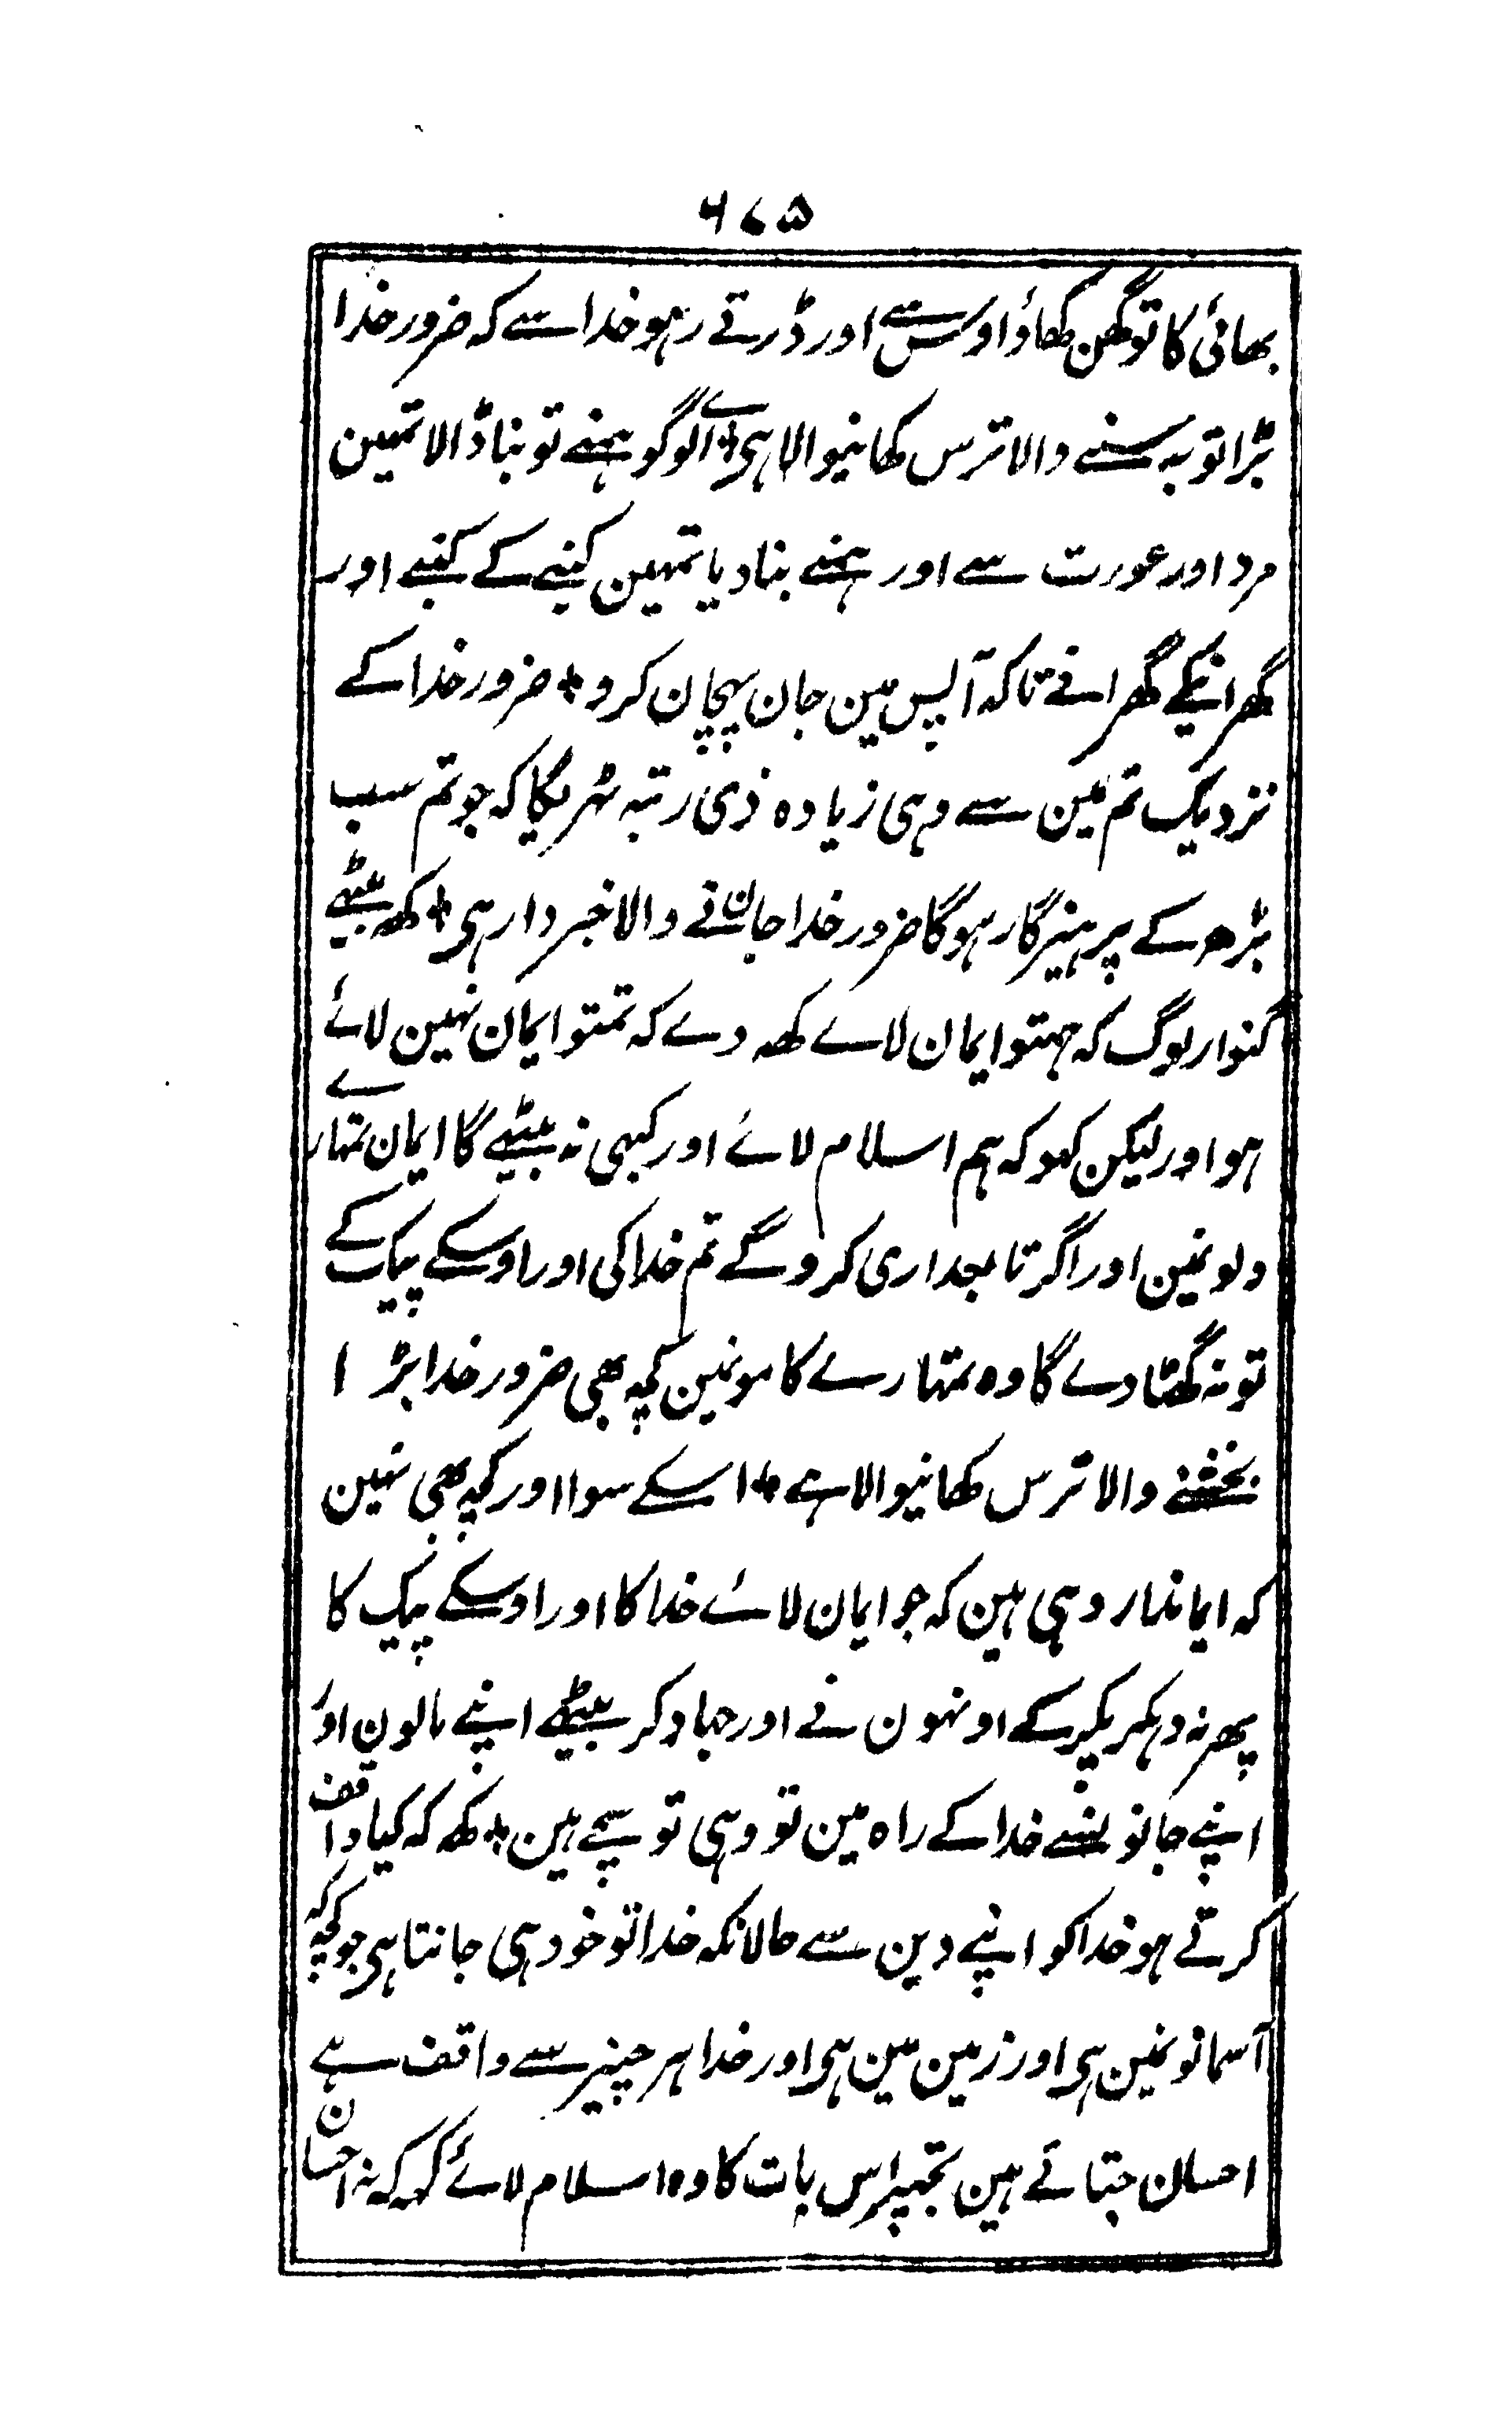 ۶۷۵
بھائی کا تو گھن کھاؤ اوس سے اور ڈرتے رہو خدا سے کہ ضرور خدا
بڑا توبہ سننے والا ترس کھانیوالا ہی * اے لوگو ہمنے تو بنا ڈالا تمہین
مرد اور عورت سے اور ہمنے بنا دیا تمہین کنبے کے کنبے اور
گھرانیکے گھرانے تاکہ آپس مین جان پہچان کرو * ضرور خدا کے
نزدیک تم مین سے وہی زیادہ ذی رتبہ ٹہریگا کہ جو تم سب
بڑھ کے پرہیزگار ہوگا ضرور خدا جاننے والا خبردار ہی * کھہ بیٹھے
گنوار لوگ کہ ہمتو ایمان لاے کھہ دے کہ تمتو ایمان نہین لائے
ہو اور لیکن کہو کہ ہم اسلام لائے اور کبہی نہ بیٹھے گا ایمان تمہارے
دلونمین اور اگر تابعداری کروگے تم خدا کی اور اوسکے پیک کے
تو نہ گھٹا دے گا وہ تمہارے کامونمین کچہ بھی ضرور خدا بڑا
بخشنے والا ترس کھانیوالا ہے * اسکے سوا اور کچہ بھی نہین
کہ ایماندار وہی ہین کہ جو ایمان لائے خدا کا اور اوسکے پیک کا
پھر نہ دہکر پکر کے اونہون نے اور جہاد کر بیٹھے اپنے مالون اور
اپنے جانونسے خدا کے راہ مین تو وہی تو سچے ہین * کھہ کہ کیا واقف
کرتے ہو خدا کو اپنے دین سے حالانکہ خدا تو خود ہی جانتا ہی جو کچہ کہ
آسمانونمین ہی اور زمین مین ہی اور خدا ہر چیز سے واقف ہے
احسان جتاتے ہین تجہپر اس بات کا وہ اسلام لائے کہہ کہ نہ احسان